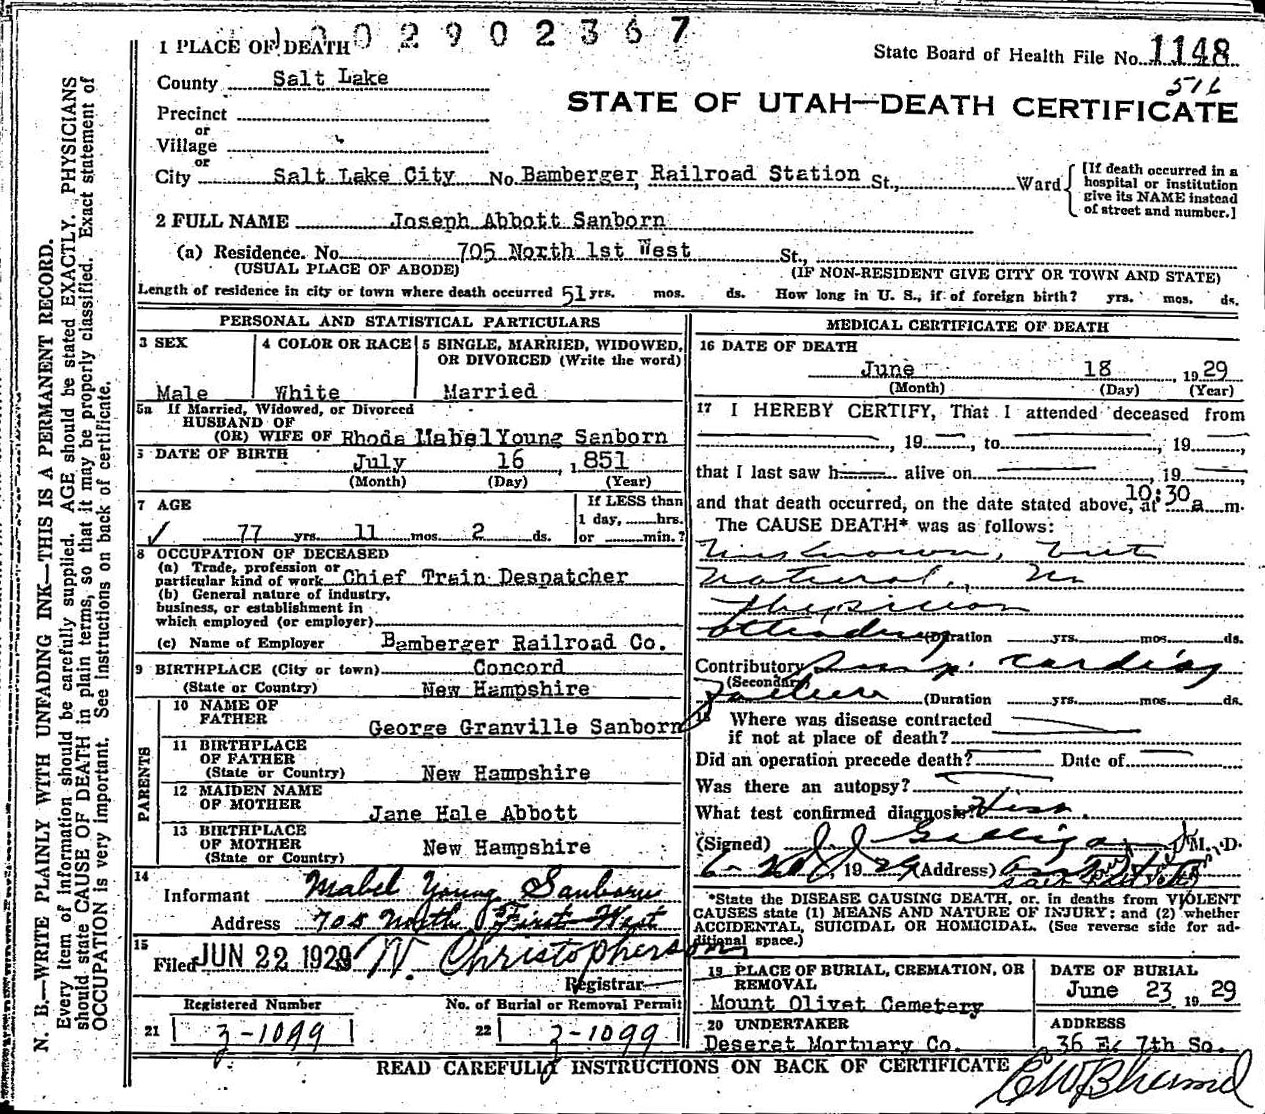 002902367
1 PLACE OF DEATH
State Board of Health File No. 1148
County Salt Lake
516
STATE OF UTAH—DEATH CERTIFICATE
Precinct
or
Village
or
City Salt Lake City No. Bamberger Railroad Station St., Ward
[If death occurred in a
hospital or institution
give its NAME instead
of street and number.]
2 FULL NAME Joseph Abbott Sanborn
(a) Residence. No. 705 North 1st West St.,
(USUAL PLACE OF ABODE) (IF NON-RESIDENT GIVE CITY OR TOWN AND STATE)
Length of residence in city or town where death occurred 51 yrs. mos. ds. How long in U. S., if of foreign birth? yrs. mos. ds.
PERSONAL AND STATISTICAL PARTICULARS
3 SEX
Male
4 COLOR OR RACE
White
5 SINGLE, MARRIED, WIDOWED,
OR DIVORCED (Write the word)
Married
5a If Married, Widowed, or Divorced
HUSBAND OF
(OR) WIFE OF Rhoda Mabel Young Sanborn
6 DATE OF BIRTH
July 16, 1851
(Month) (Day) (Year)
7 AGE
77 yrs. 11 mos. 2 ds.
If LESS than
1 day, hrs.
or min.?
8 OCCUPATION OF DECEASED
(a) Trade, profession or
particular kind of work Chief Train Despatcher
(b) General nature of industry,
business, or establishment in
which employed (or employer)
(c) Name of Employer Bamberger Railroad Co.
9 BIRTHPLACE (City or town) Concord
(State or Country) New Hampshire
PARENTS
10 NAME OF
FATHER George Granville Sanborn
11 BIRTHPLACE
OF FATHER
(State or Country) New Hampshire
12 MAIDEN NAME
OF MOTHER Jane Hale Abbott
13 BIRTHPLACE
OF MOTHER
(State or Country) New Hampshire
14
Informant Mabel Young Sanborn
Address 705 North First West
15
Filed JUN 22 1929 W. Christopherson
Registrar
Registered Number
21 3-1099
No. of Burial or Removal Permit
22 3-1099
MEDICAL CERTIFICATE OF DEATH
16 DATE OF DEATH
June 18, 1929
(Month) (Day) (Year)
17 I HEREBY CERTIFY, That I attended deceased from
, 19 , to , 19 ,
that I last saw h alive on , 19
and that death occurred, on the date stated above, at 10:30 a m.
The CAUSE DEATH* was as follows:
Unknown, but
Natural. No
Physician
attending (Duration yrs. mos. ds.
Contributory Sup. Cardiac
(Secondary)
Failure (Duration yrs. mos. ds.
18 Where was disease contracted
if not at place of death?
Did an operation precede death? Date of
Was there an autopsy?
What test confirmed diagnosis? Hist.
(Signed) J. J. Galligan M. D.
6- 1929 (Address)
*State the DISEASE CAUSING DEATH, or, in deaths from VIOLENT
CAUSES state (1) MEANS AND NATURE OF INJURY; and (2) whether
ACCIDENTAL, SUICIDAL OR HOMICIDAL. (See reverse side for ad-
ditional space.)
19 PLACE OF BURIAL, CREMATION, OR
REMOVAL
Mount Olivet Cemetery
DATE OF BURIAL
June 23 1929
20 UNDERTAKER
Deseret Mortuary Co.
ADDRESS
36 E. 7th So.
READ CAREFULLY INSTRUCTIONS ON BACK OF CERTIFICATE
N. B.—WRITE PLAINLY WITH UNFADING INK—THIS IS A PERMANENT RECORD.
Every item of information should be carefully supplied. AGE should be stated EXACTLY. PHYSICIANS
should state CAUSE OF DEATH in plain terms, so that it may be properly classified. Exact statement of
OCCUPATION is very important. See instructions on back of certificate.